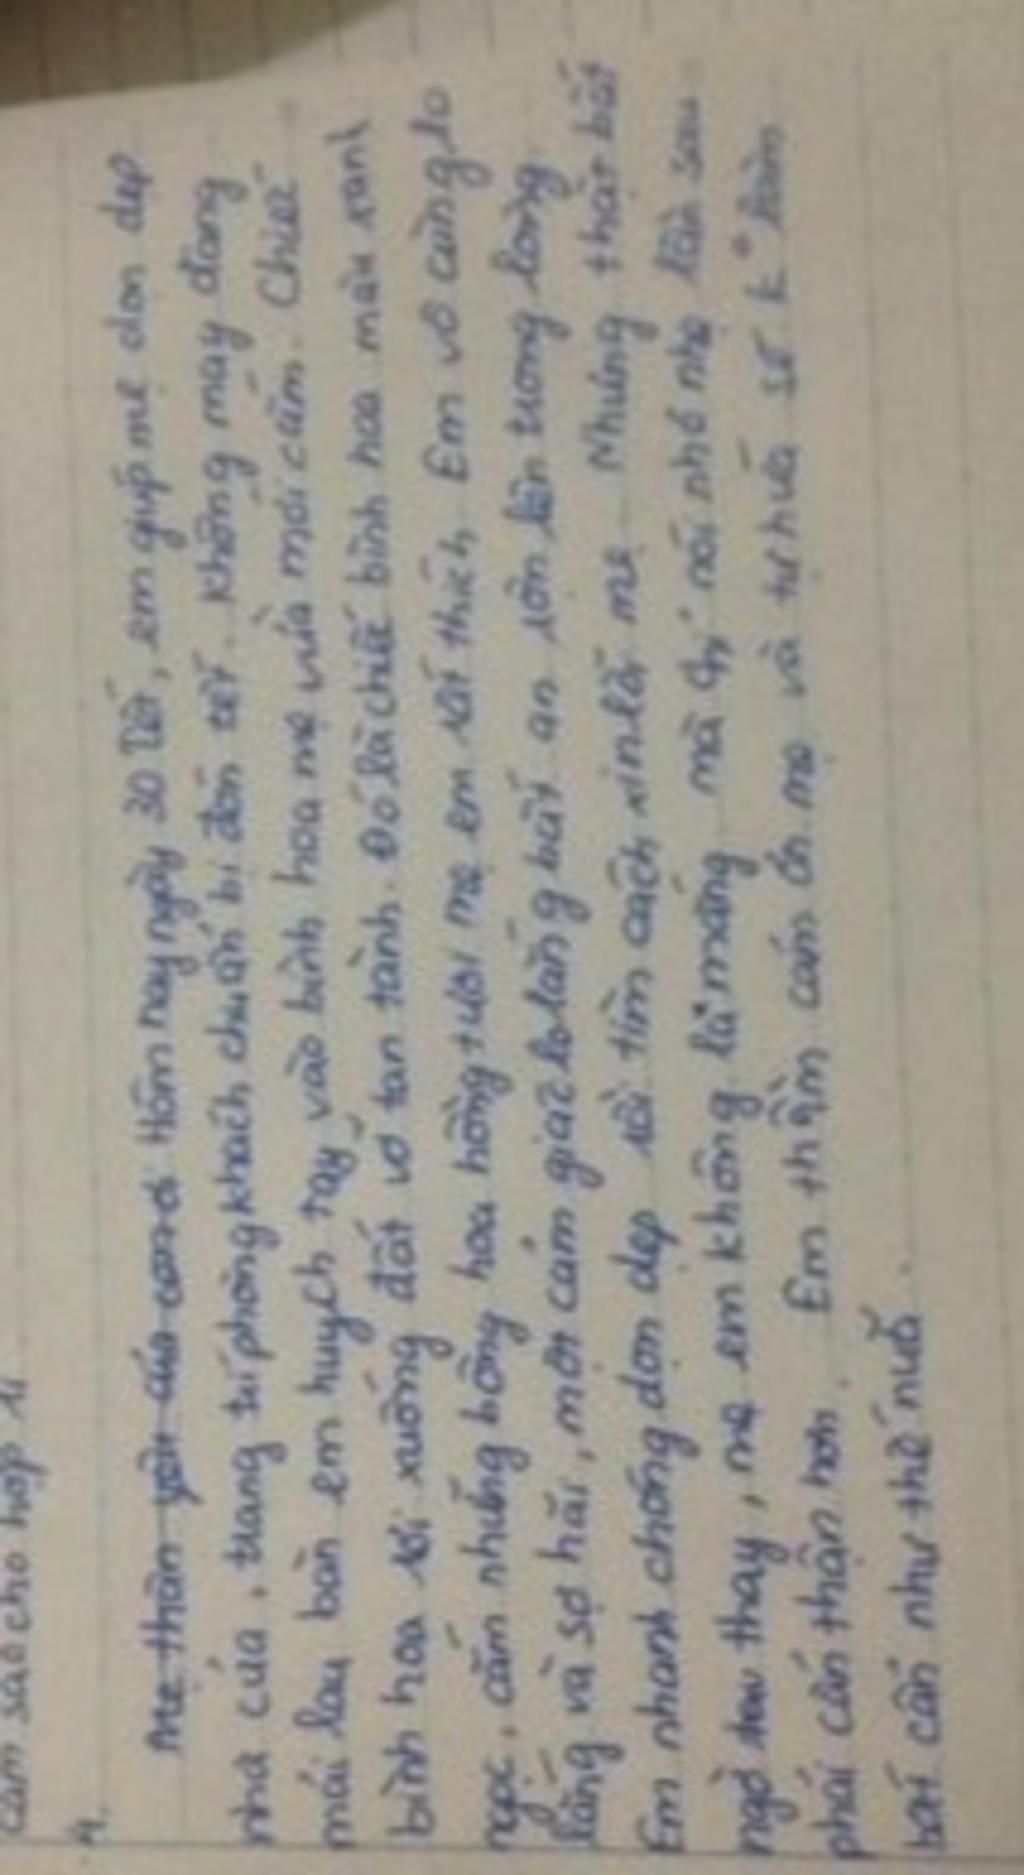 cảm sao cho hợp lí
4.
Mẹ thân yêu của con ơi Hôm nay ngày 30 Tết, em giúp mẹ dọn dẹp
nhà cửa, trang trí phòng khách chuẩn bị đón tết. Không may đang
mải lau bàn em huých tay vào bình hoa mẹ vừa mới cắm. Chiếc
bình hoa rơi xuống đất vỡ tan tành. Đó là chiếc bình hoa màu xanh
ngọc, cắm những bông hoa hồng tươi mẹ em rất thích. Em vô cùng lo
lắng và sợ hãi, một cảm giác lo lắng bất an rộn lên trong lòng.
Em nhanh chóng dọn dẹp rồi tìm cách xin lỗi mẹ. Nhưng thật bất
ngờ thay, mẹ em không la mắng mà chỉ nói nhỏ nhẹ lần sau
phải cẩn thận hơn. Em thầm cảm ơn mẹ và tự hứa sẽ k làm
bất cẩn như thế nữa.